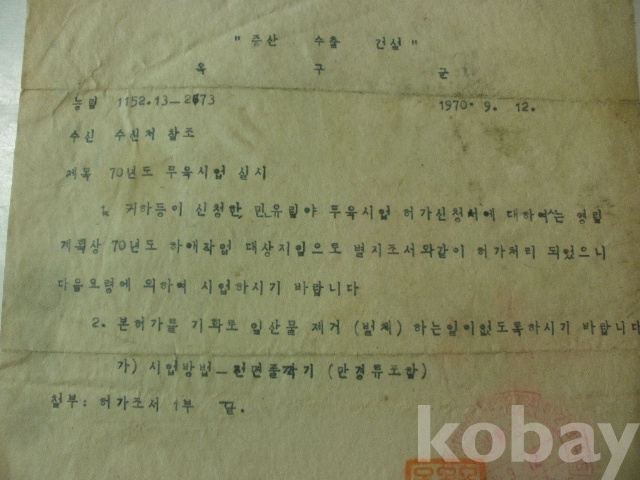 "증산 수출 건설"
옥 구 군
농림 1152.13-2673 1970. 9. 12.
수신 수신처 참조
제목 70년도 무육시업 실시
1. 귀하등이 신청한 민유림야 무육시업 허가신청서에 대하여는 영림
계획상 70년도 하예작업 대상지임으로 별지조서와같이 허가처리 되었으니
다음요령에 의하여 시업하시기 바랍니다
2. 본허가를 기화로 임산물 제거 (벌채) 하는일이없도록하시기 바랍니다
가) 시업방법-전면풀깎기 (만경류포함)
첨부: 허가조서 1부 끝.
kobay